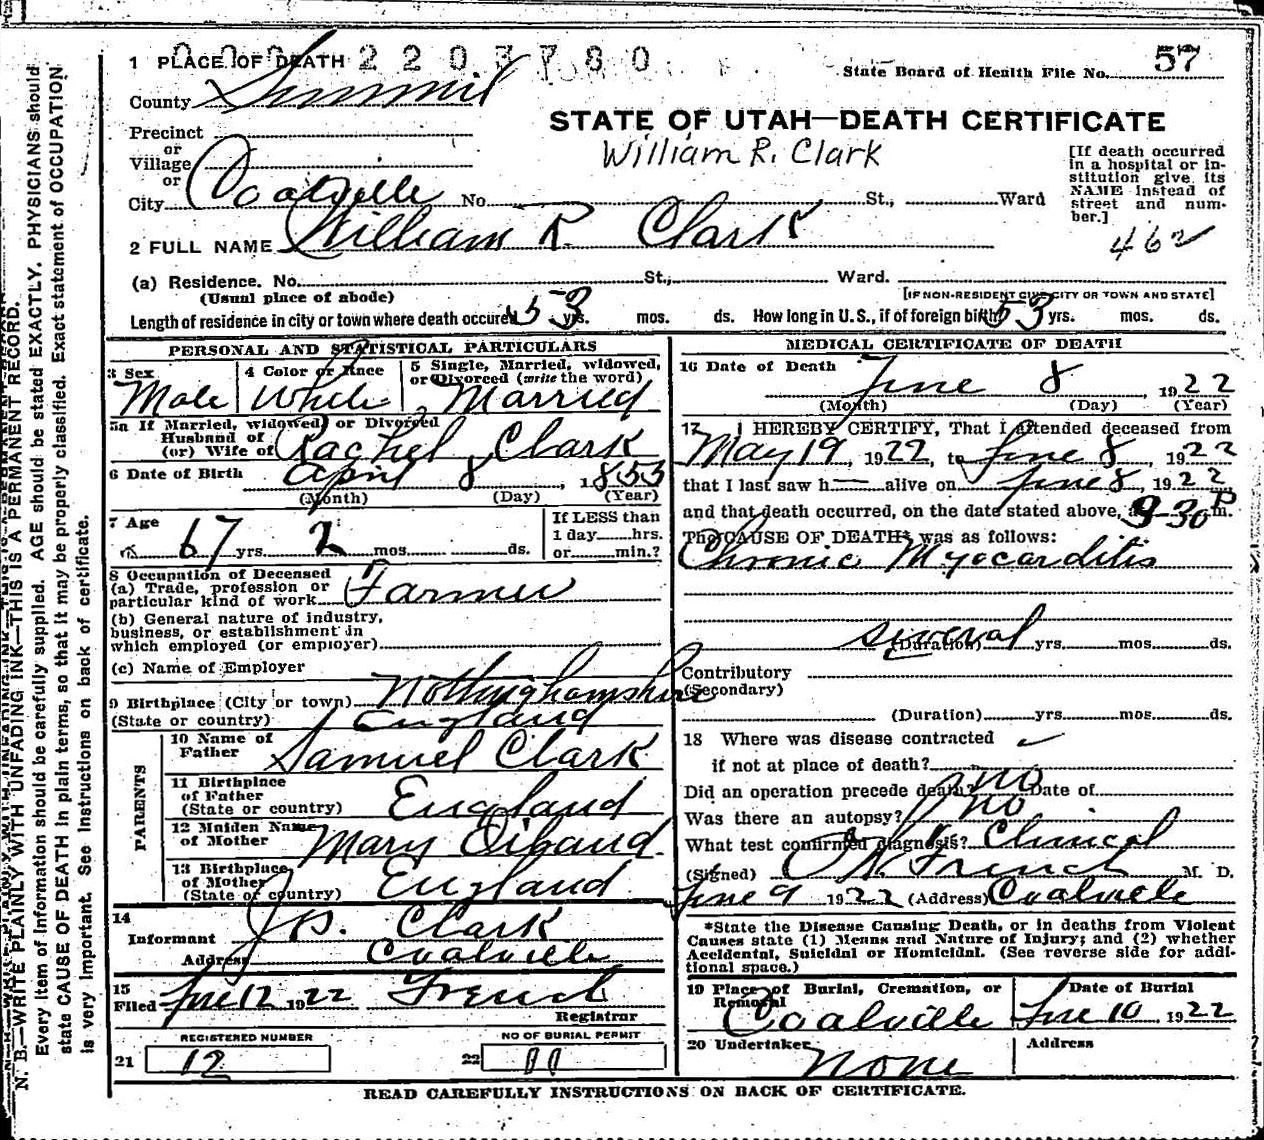 1 PLACE OF DEATH 2203780
State Board of Health File No. 57
County Summit
STATE OF UTAH—DEATH CERTIFICATE
Precinct
or
Village
or
City Coalville No. St., Ward
William R. Clark
[If death occurred
in a hospital or in-
stitution give its
NAME instead of
street and num-
ber.]
462
2 FULL NAME William R. Clark
(a) Residence. No. St., Ward.
(Usual place of abode) [IF NON-RESIDENT GIVE CITY OR TOWN AND STATE]
Length of residence in city or town where death occured 53 yrs. mos. ds. How long in U.S., if of foreign birth 53 yrs. mos. ds.
PERSONAL AND STATISTICAL PARTICULARS
3 Sex 4 Color or Race 5 Single, Married, widowed,
or Divorced (write the word)
Male White Married
5a If Married, widowed, or Divorced
Husband of
(or) Wife of Rachel Clark
6 Date of Birth April 8, 1853
(Month) (Day) (Year)
7 Age If LESS than
67 yrs. 2 mos. ds. 1 day hrs.
or min.?
8 Occupation of Deceased
(a) Trade, profession or
particular kind of work Farmer
(b) General nature of industry,
business, or establishment in
which employed (or employer)
(c) Name of Employer
9 Birthplace (City or town) Nottinghamshire
(State or country) England
PARENTS
10 Name of
Father Samuel Clark
11 Birthplace
of Father
(State or country) England
12 Maiden Name
of Mother Mary
13 Birthplace
of Mother
(State or country) England
14
Informant Clark
Address Coalville
15
Filed June 12 1922 French
Registrar
REGISTERED NUMBER NO OF BURIAL PERMIT
21 12 22 11
MEDICAL CERTIFICATE OF DEATH
16 Date of Death June 8 1922
(Month) (Day) (Year)
17 I HEREBY CERTIFY, That I attended deceased from
May 19, 1922, to June 8, 1922
that I last saw h alive on June 8, 1922
and that death occurred, on the date stated above, at 9-30 P m.
The CAUSE OF DEATH* was as follows:
Chronic Myocarditis
several
(Duration) yrs. mos. ds.
Contributory
(Secondary)
(Duration) yrs. mos. ds.
18 Where was disease contracted
if not at place of death?
Did an operation precede death? no Date of
Was there an autopsy? no
What test confirmed diagnosis? Clinical
(Signed) French M. D.
June 9 1922 (Address) Coalville
*State the Disease Causing Death, or in deaths from Violent
Causes state (1) Means and Nature of Injury; and (2) whether
Accidental, Suicidal or Homicidal. (See reverse side for addi-
tional space.)
19 Place of Burial, Cremation, or
Removal
Date of Burial
Coalville June 10 1922
20 Undertaker Address
none
READ CAREFULLY INSTRUCTIONS ON BACK OF CERTIFICATE.
N. B.—WRITE PLAINLY WITH UNFADING INK—THIS IS A PERMANENT RECORD.
Every item of information should be carefully supplied. AGE should be stated EXACTLY. PHYSICIANS should
state CAUSE OF DEATH in plain terms, so that it may be properly classified. Exact statement of OCCUPATION
is very important. See Instructions on back of certificate.